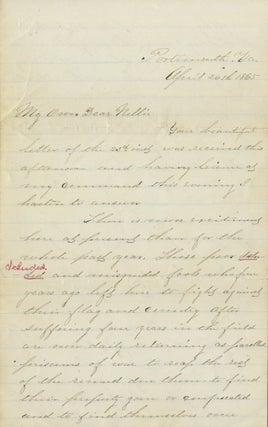 Portsmouth, Va.
April 26th 1865
My Own Dear Nellie
Your beautiful
letter of the 23d inst was received this
afternoon and having leisure at
my command this evening I
hasten to answer
There is more excitement
here at present than for the
whole past year. Those poor
deluded
and misguided fools who four
years ago left here to fight against
their flag and country after
suffering four years in the field
are now daily returning as paroled
prisoners of war to reap the
of the to find
their property gone or confiscated
and to find themselves once